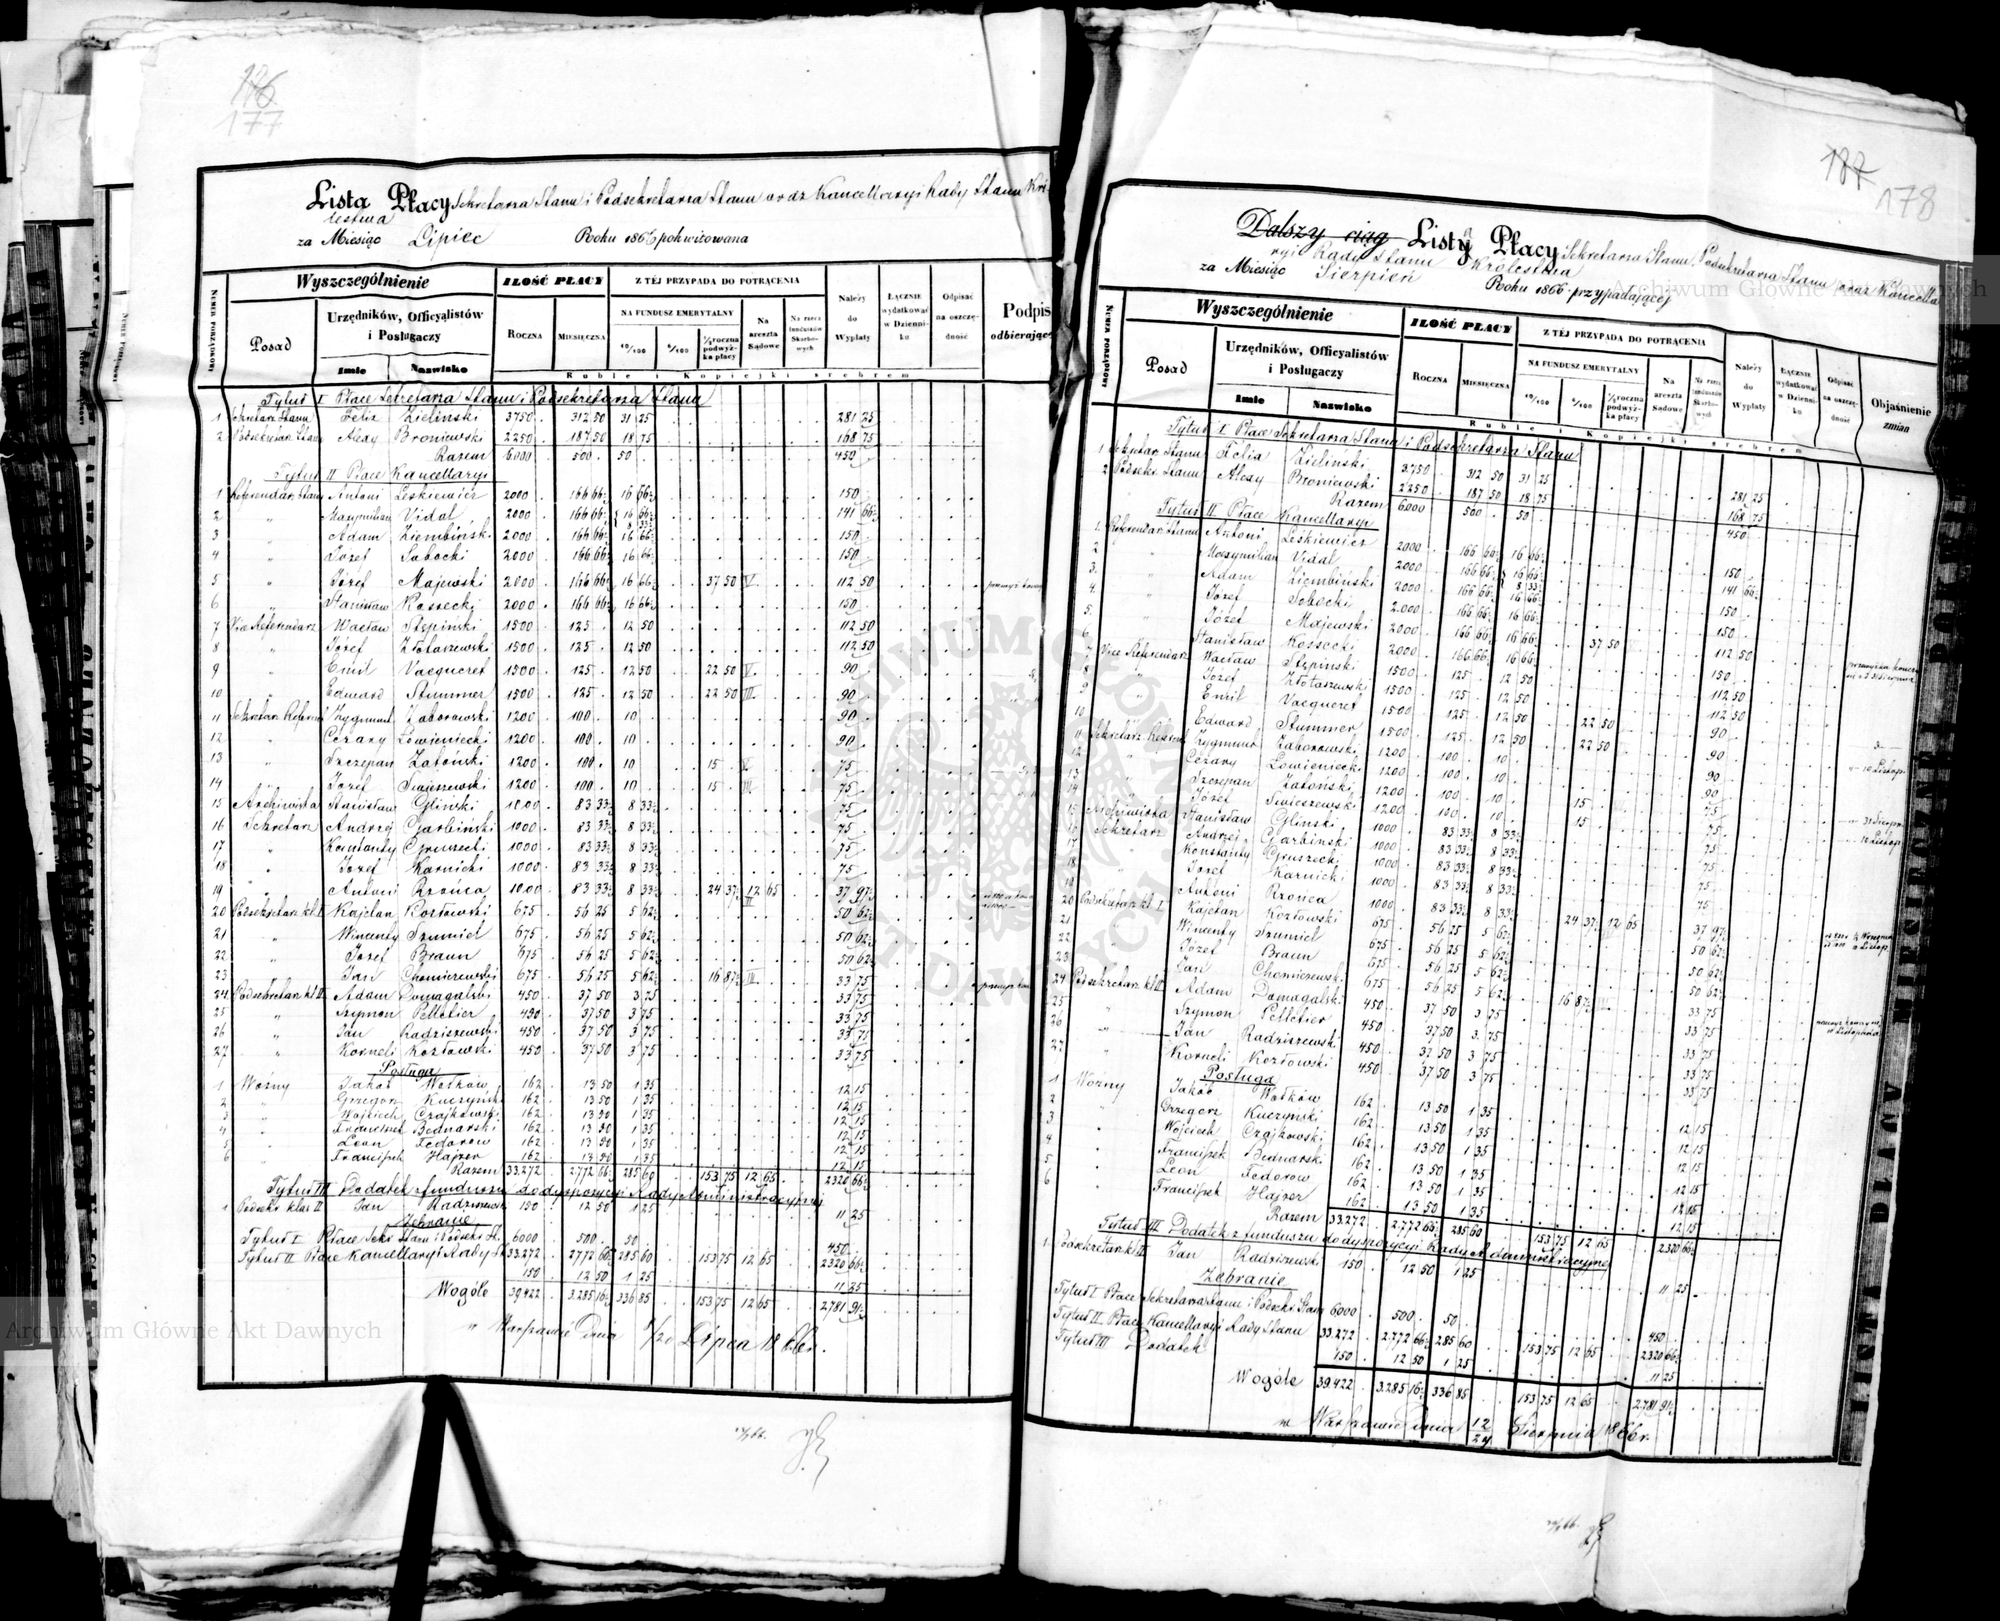 176
177
Lista Płacy Sekretarza Stanu i Podsekretarza Stanu oraz Kancellaryi Rady Stanu Kró
lestwa
za Miesiąc Lipiec Roku 1866 pokwitowana
NUMER PORZĄDKOWY
Wyszczególnienie
Posad
Urzędników, Officyalistów i Posługaczy
Imie Nazwisko
ILOŚĆ PŁACY
ROCZNA MIESIĘCZNA
Z TÉJ PRZYPADA DO POTRĄCENIA
NA FUNDUSZ EMERYTALNY
10/100 6/100 1/3 roczna podwyżka płacy
Na areszta Sądowe
Na rzecz funduszów Skarbowych
Należy do Wypłaty
ŁĄCZNIE wydatkować w Dzienniku
Odpisać na oszczędność
Podpis odbierając
Ruble i Kopiejki srebrem
Tytuł I Płace Sekretarza Stanu i Podsekretarza Stanu
1 Sekretarz Stanu Felix Zieliński 3750 312 50 31 25 281 25
2 Podsekretarz Stanu Alexy Broniewski 2250 187 50 18 75 168 75
Razem 6000 500 50 450
Tytuł II Płace Kancellaryi
1 Referendarz Stanu Antoni Leśkiewicz 2000 166 66 16 66 150
2 " Maxymilian Vidal 2000 166 66 16 66 8 33 141 66
3 " Adam Ziembiński 2000 166 66 16 66 150
4 " Józef Sobocki 2000 166 66 16 66 150
5 " Józef Majewski 2000 166 66 16 66 37 50 V 112 50
6 " Stanisław Kossecki 2000 166 66 16 66 150
7 Vice Referendarz Wacław Stępiński 1500 125 12 50 112 50
8 " Józef Złotaszewski 1500 125 12 50 112 50
9 " Emil Vacqueret 1500 125 12 50 22 50 V 90
10 " Edward Stummer 1500 125 12 50 22 50 III 90
11 Sekretarz Referend Zygmunt Zaborowski 1200 100 10 90
12 " Cezary Łowieniecki 1200 100 10 90
13 " Szczepan Zatoński 1200 100 10 15 V 75
14 " Józef Swieszewski 1200 100 10 15 III 75
15 Archiwista Stanisław Gliński 1000 83 33 8 33 75
16 Sekretarz Andrzej Garbiński 1000 83 33 8 33 75
17 " Konstanty Gruszecki 1000 83 33 8 33 75
18 " Józef Karnicki 1000 83 33 8 33 75
19 " Antoni Rzońca 1000 83 33 8 33 24 37 12 65 37 97
20 Podsekretarz kl I Kajetan Kozłowski 675 56 25 5 62 50 62
21 " Wincenty Szumiel 675 56 25 5 62 50 62
22 " Józef Braun 675 56 25 5 62 50 62
23 " Jan Chomiczewski 675 56 25 5 62 16 87 III 33 75
24 Podsekretarz kl II Adam Domagalski 450 37 50 3 75 33 75
25 " Szymon Pelletier 450 37 50 3 75 33 75
26 " Jan Radziszewski 450 37 50 3 75 33 75
27 " Korneli Kozłowski 450 37 50 3 75 33 75
Posługa
1 Woźny Jakób Wołków 162 13 50 1 35 12 15
2 " Grzegorz Kuczyński 162 13 50 1 35 12 15
3 " Wojciech Czajkowski 162 13 50 1 35 12 15
4 " Franciszek Bednarski 162 13 50 1 35 12 15
5 " Leon Fedorow 162 13 50 1 35 12 15
6 " Franciszek Hajzer 162 13 50 1 35 12 15
Razem 33.272 2.772 66 285 60 153 75 12 65 2320 66
Tytuł III Dodatek z funduszu do dyspozycyi Rady Administracyjnej
1 Podsekr klas II Jan Radziszewski 150 12 50 1 25 11 25
Zebranie
Tytuł I Płace Sekr Stanu i Podsekr St. 6000 500 50 450
Tytuł II Płace Kancellaryi Rady St 33.272 2772 66 285 60 153 75 12 65 2320 66
150 12 50 1 25 11 25
Wogóle 39.422 3.285 16 336 85 153 75 12 65 2781 91
w Warszawie dnia Lipca 1866 r.
177
178
Dalszy ciąg Listy Płacy Sekretarza Stanu, Podsekretarza Stanu oraz Kancella
ryi Rady Stanu Królestwa
za Miesiąc Sierpień Roku 1866 przypadającej
NUMER PORZĄDKOWY
Wyszczególnienie
Posad
Urzędników, Officyalistów i Posługaczy
Imie Nazwisko
ILOŚĆ PŁACY
ROCZNA MIESIĘCZNA
Z TÉJ PRZYPADA DO POTRĄCENIA
NA FUNDUSZ EMERYTALNY
10/100 6/100 1/3 roczna podwyżka płacy
Na areszta Sądowe
Na rzecz funduszów Skarbowych
Należy do Wypłaty
ŁĄCZNIE wydatkować w Dzienniku
Odpisać na oszczędność
Objaśnienie zmian
Ruble i Kopiejki srebrem
Tytuł I Płace Sekretarza Stanu i Podsekretarza Stanu
1 Sekretarz Stanu Felix Zieliński 3750 312 50 31 25 281 25
2 Podsekr. Stanu Alexy Broniewski 2250 187 50 18 75 168 75
Razem 6000 500 50 450
Tytuł II Płace Kancellaryi
1 Referendarz Stanu Antoni Leśkiewicz 2000 166 66 16 66 150
2 " Maxymilian Vidal 2000 166 66 16 66 8 33 141 66
3 " Adam Ziembiński 2000 166 66 16 66 150
4 " Józef Sobocki 2000 166 66 16 66 150
5 " Józef Majewski 2000 166 66 16 66 37 50 112 50
6 " Stanisław Kossecki 2000 166 66 16 66 150
7 Vice Referendarz Wacław Stępiński 1500 125 12 50 112 50
8 " Józef Złotaszewski 1500 125 12 50 112 50
9 " Emil Vacqueret 1500 125 12 50 22 50 90
10 " Edward Stummer 1500 125 12 50 22 50 90
11 Sekretarz Referend Zygmunt Zaborowski 1200 100 10 90
12 " Cezary Łowieniecki 1200 100 10 90
13 " Szczepan Zatoński 1200 100 10 15 75
14 " Józef Swieszewski 1200 100 10 15 75
15 Archiwista Stanisław Gliński 1000 83 33 8 33 75
16 Sekretarz Andrzej Garbiński 1000 83 33 8 33 75
17 " Konstanty Gruszecki 1000 83 33 8 33 75
18 " Józef Karnicki 1000 83 33 8 33 75
19 " Antoni Rzońca 1000 83 33 8 33 24 37 12 65 37 97
20 Podsekretarz kl I Kajetan Kozłowski 675 56 25 5 62 50 62
21 " Wincenty Szumiel 675 56 25 5 62 50 62
22 " Józef Braun 675 56 25 5 62 50 62
23 " Jan Chomiczewski 675 56 25 5 62 16 87 33 75
24 Podsekretarz kl II Adam Domagalski 450 37 50 3 75 33 75
25 " Szymon Pelletier 450 37 50 3 75 33 75
26 " Jan Radziszewski 450 37 50 3 75 33 75
27 " Korneli Kozłowski 450 37 50 3 75 33 75
Posługa
1 Woźny Jakób Wołków 162 13 50 1 35 12 15
2 " Grzegorz Kuczyński 162 13 50 1 35 12 15
3 " Wojciech Czajkowski 162 13 50 1 35 12 15
4 " Franciszek Bednarski 162 13 50 1 35 12 15
5 " Leon Fedorow 162 13 50 1 35 12 15
6 " Franciszek Hajzer 162 13 50 1 35 12 15
Razem 33.272 2.772 66 285 60 153 75 12 65 2320 66
Tytuł III Dodatek z funduszu do dyspozycyi Rady Administracyjnej
1 Podsekretarz kl II Jan Radziszewski 150 12 50 1 25 11 25
Zebranie
Tytuł I Płace Sekretarza Stanu i Podsekr. Stanu 6000 500 50 450
Tytuł II Płace Kancellaryi Rady Stanu 33.272 2.772 66 285 60 153 75 12 65 2320 66
Tytuł III Dodatek 150 12 50 1 25 11 25
Wogóle 39.422 3.285 16 336 85 153 75 12 65 2.781 91
w Warszawie dnia 12/24 Sierpnia 1866 r.
Archiwum Główne Akt Dawnych
Archiwum Główne Akt Dawnych
ARCHIWUM GŁÓWNE AKT DAWNYCH